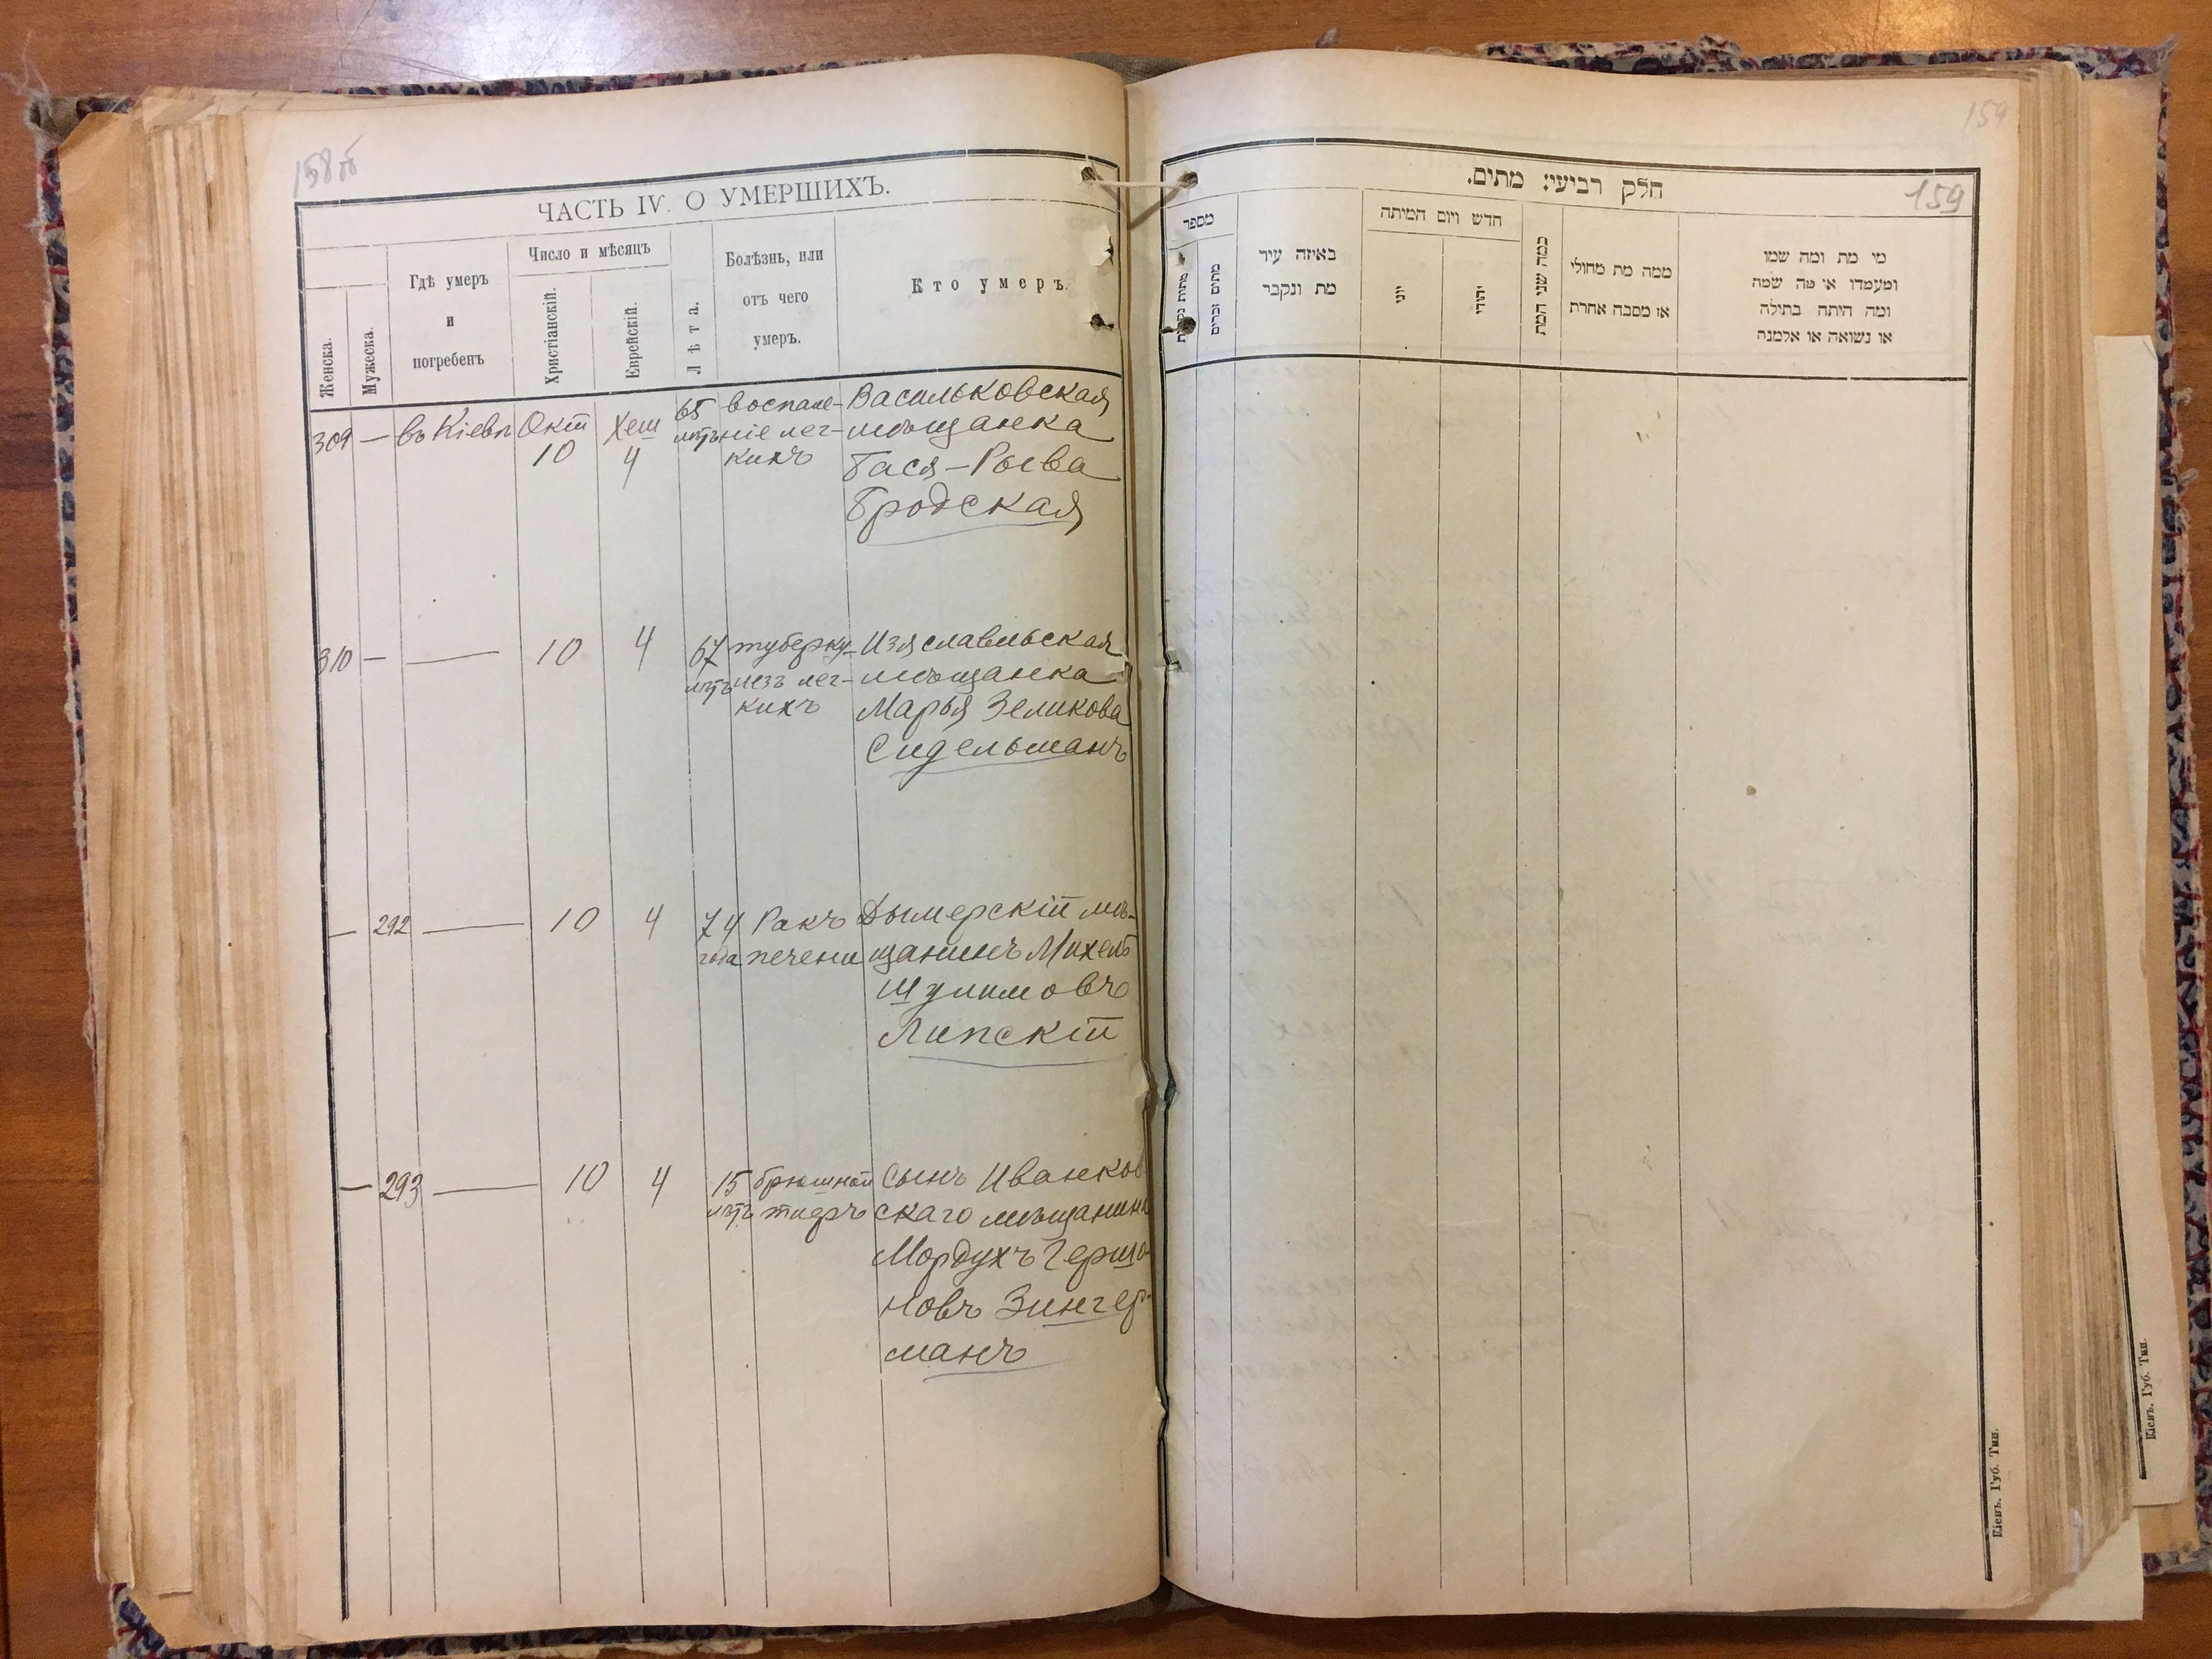 158об
ЧАСТЬ IV. О УМЕРШИХЪ.
Женска.
Мужеска.
Гдѣ умеръ
и
погребенъ
Число и мѣсяцъ
Христіанскій.
Еврейскій.
Лѣта.
Болѣзнь, или
отъ чего
умеръ.
Кто умеръ.
309 — въ Кіевѣ Окт 10 Хеш 4 65 лѣтъ
воспале-
ніе лег-
кихъ
Васильковская
мѣщанка
Бася-Рыва
Бродская
310 — — 10 4 67 лѣтъ
туберку-
лезъ лег-
кихъ
Изяславльская
мѣщанка
Марья Зеликова
Сидельманъ
— 292 — 10 4 74 года
Ракъ
печени
Дымерскій мѣ-
щанинъ Михель
Шулимовъ
Липскій
— 293 — 10 4 15 лѣтъ
брюшной
тифъ
Сынъ Иванков
скаго мѣщанина
Мордухъ Гершо-
новъ Зингер-
манъ
159
159
חלק רביעי: מתים.
מספר
מתים זכרים
באיזה עיר
מת ונקבר
חדש ויום המיתה
יוני
יהודי
כמה שני המת
ממה מת מחולי
או מסבה אחרת
מי מת ומה שמו
ומעמדו או מה שמה
ומה היתה בתולה
או נשואה או אלמנה
Кіевъ. Губ. Тип.
Кіевъ. Губ. Тип.